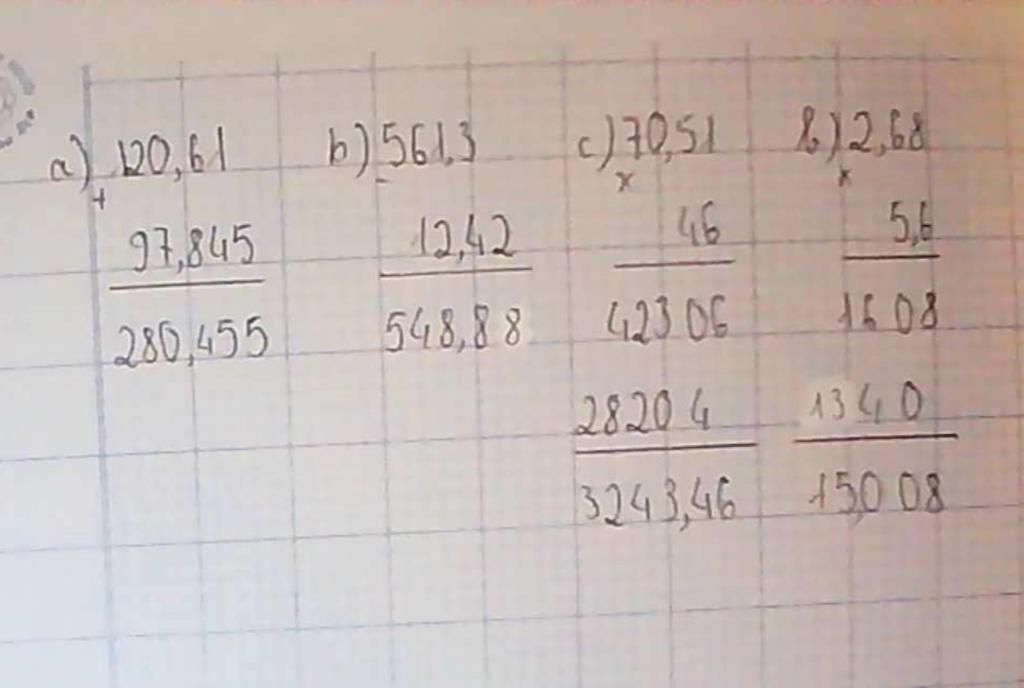 a) 120,61 b) 561,3 c) 70,51 b) 2,68
+ - x x
97,845 12,42 46 5,6
280,455 548,88 42306 1608
28204 1340
3243,46 15,008